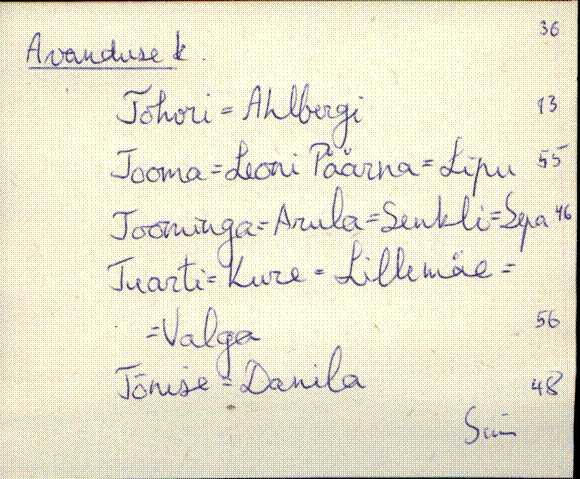 36
Avanduse k.
Tohori = Ahlbergi 13
Tooma = Leoni Päärna = Lipu 55
Toominga = Arula = Senkli = Sepa 46
Tuarti = Kure = Lillemäe =
= Valga 56
Tõnise = Danila 48